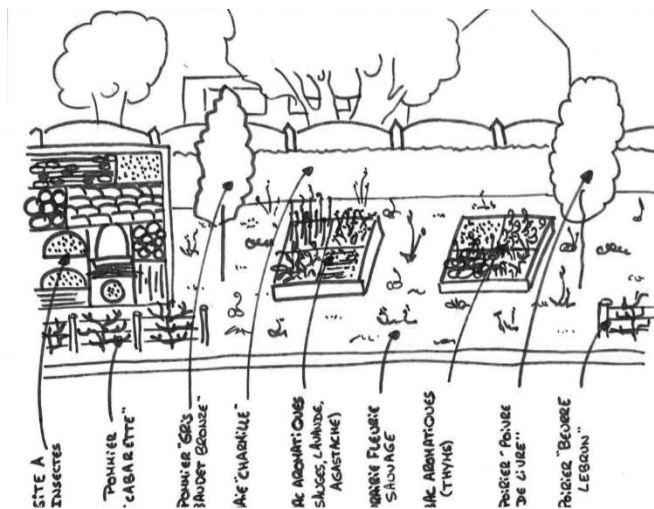 GITE A
INSECTES
POMMIER
"CABARETTE"
POMMIER "GRIS
BAUDET BRONZE"
HAIE "CHARMILLE"
BAC AROMATIQUES
SAUGES, LAVANDE,
AGASTACHE)
PRAIRIE FLEURIE
SAUVAGE
BAC AROMATIQUES
(THYMS)
POIRIER "POIVRE
DE LIVRE"
POIRIER "BEURRE
LEBRUN"